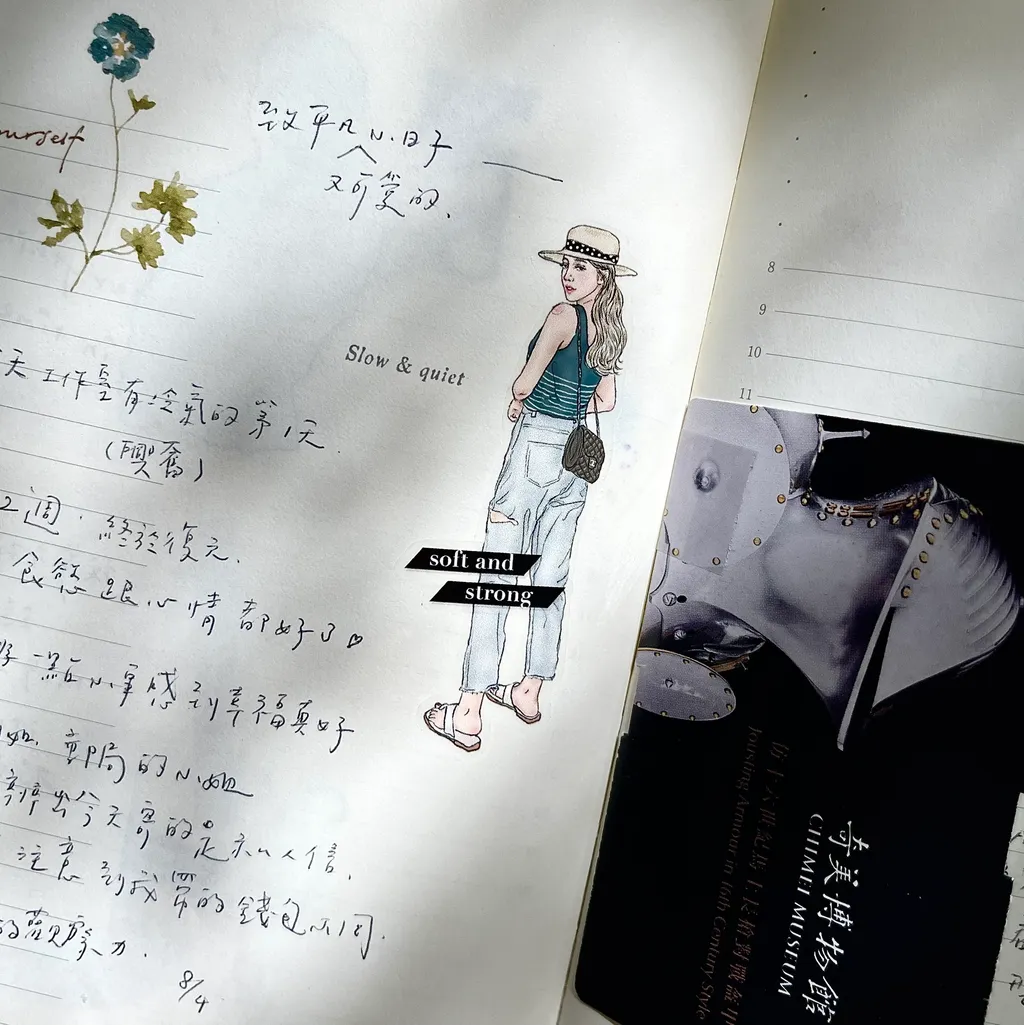 yourself
致平凡小日子 ——
又可愛的、
Slow & quiet
天 工作室有冷氣的第1天.
(興奮)
2週. 終於復元.
食慾跟心情都好了♡
一瓶小單感到幸福真好
郵局的小姐
辨出今天寄的是私人信.
注意到我帶的錢包不同.
的觀察力.
8/4
soft and
strong
8
9
10
11
仿十六世紀馬上長槍對戰盔甲
Jousting Armour in 16th Century Style
奇美博物館
CHIMEI MUSEUM